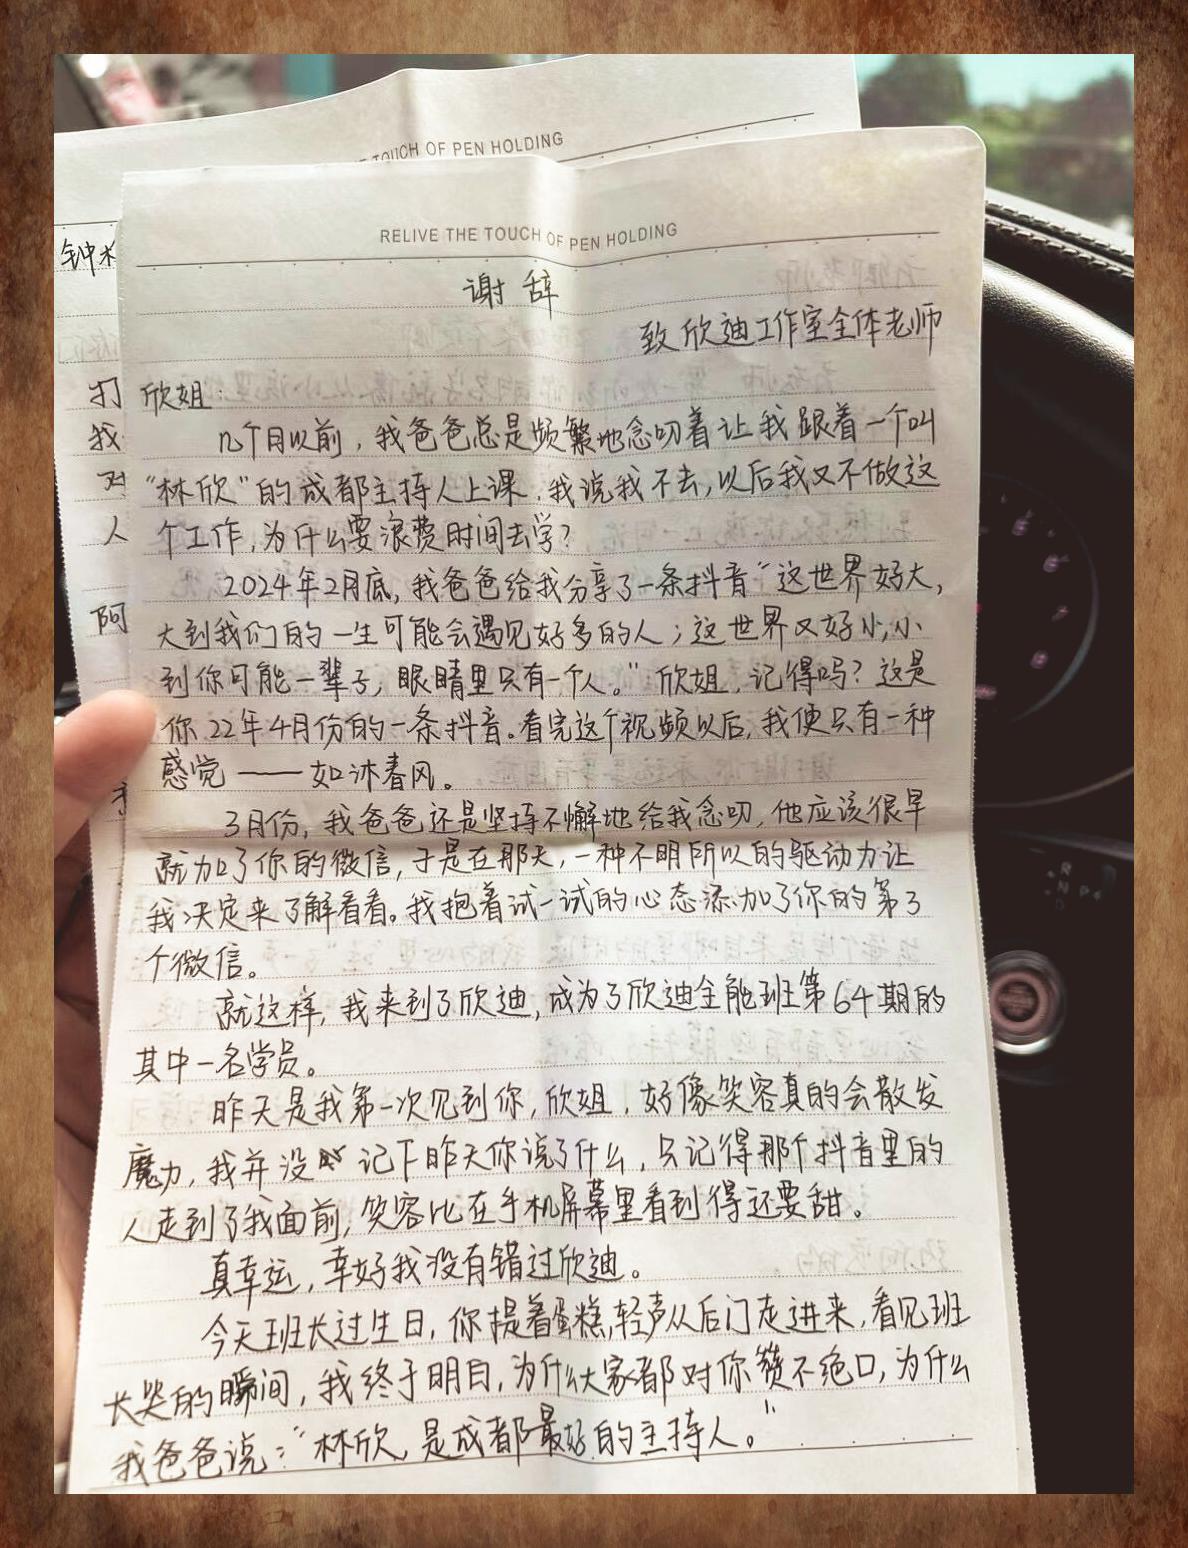 TOUCH OF PEN HOLDING
RELIVE THE TOUCH OF PEN HOLDING
谢辞
致欣迪工作室全体老师
欣姐
几个月以前,我爸爸总是频繁地念叨着让我跟着一个叫
“林欣”的成都主持人上课,我说我不去,以后我又不做这
个工作,为什么要浪费时间去学?
2024年2月底,我爸爸给我分享了一条抖音“这世界好大,
大到我们的一生可能会遇见好多的人;这世界又好小,小
到你可能一辈子,眼睛里只有一个人。”欣姐,记得吗?这是
你22年4月份的一条抖音。看完这个视频以后,我便只有一种
感觉——如沐春风。
3月份,我爸爸还是坚持不懈地给我念叨,他应该很早
就加了你的微信,于是在那天,一种不明所以的驱动力让
我决定来了解看看。我抱着试一试的心态添加了你的第3
个微信。
就这样,我来到了欣迪,成为了欣迪全能班第64期的
其中一名学员。
昨天是我第一次见到你,欣姐,好像笑容真的会散发
魔力,我并没记下昨天你说了什么,只记得那个抖音里的
人走到了我面前,笑容比在手机屏幕里看到得还要甜。
真幸运,幸好我没有错过欣迪。
今天班长过生日,你提着蛋糕,轻声从后门走进来,看见班
长哭的瞬间,我终于明白,为什么大家都对你赞不绝口,为什么
我爸爸说:“林欣,是成都最好的主持人。”
钟
打
我
对
人
阿
R
N
D